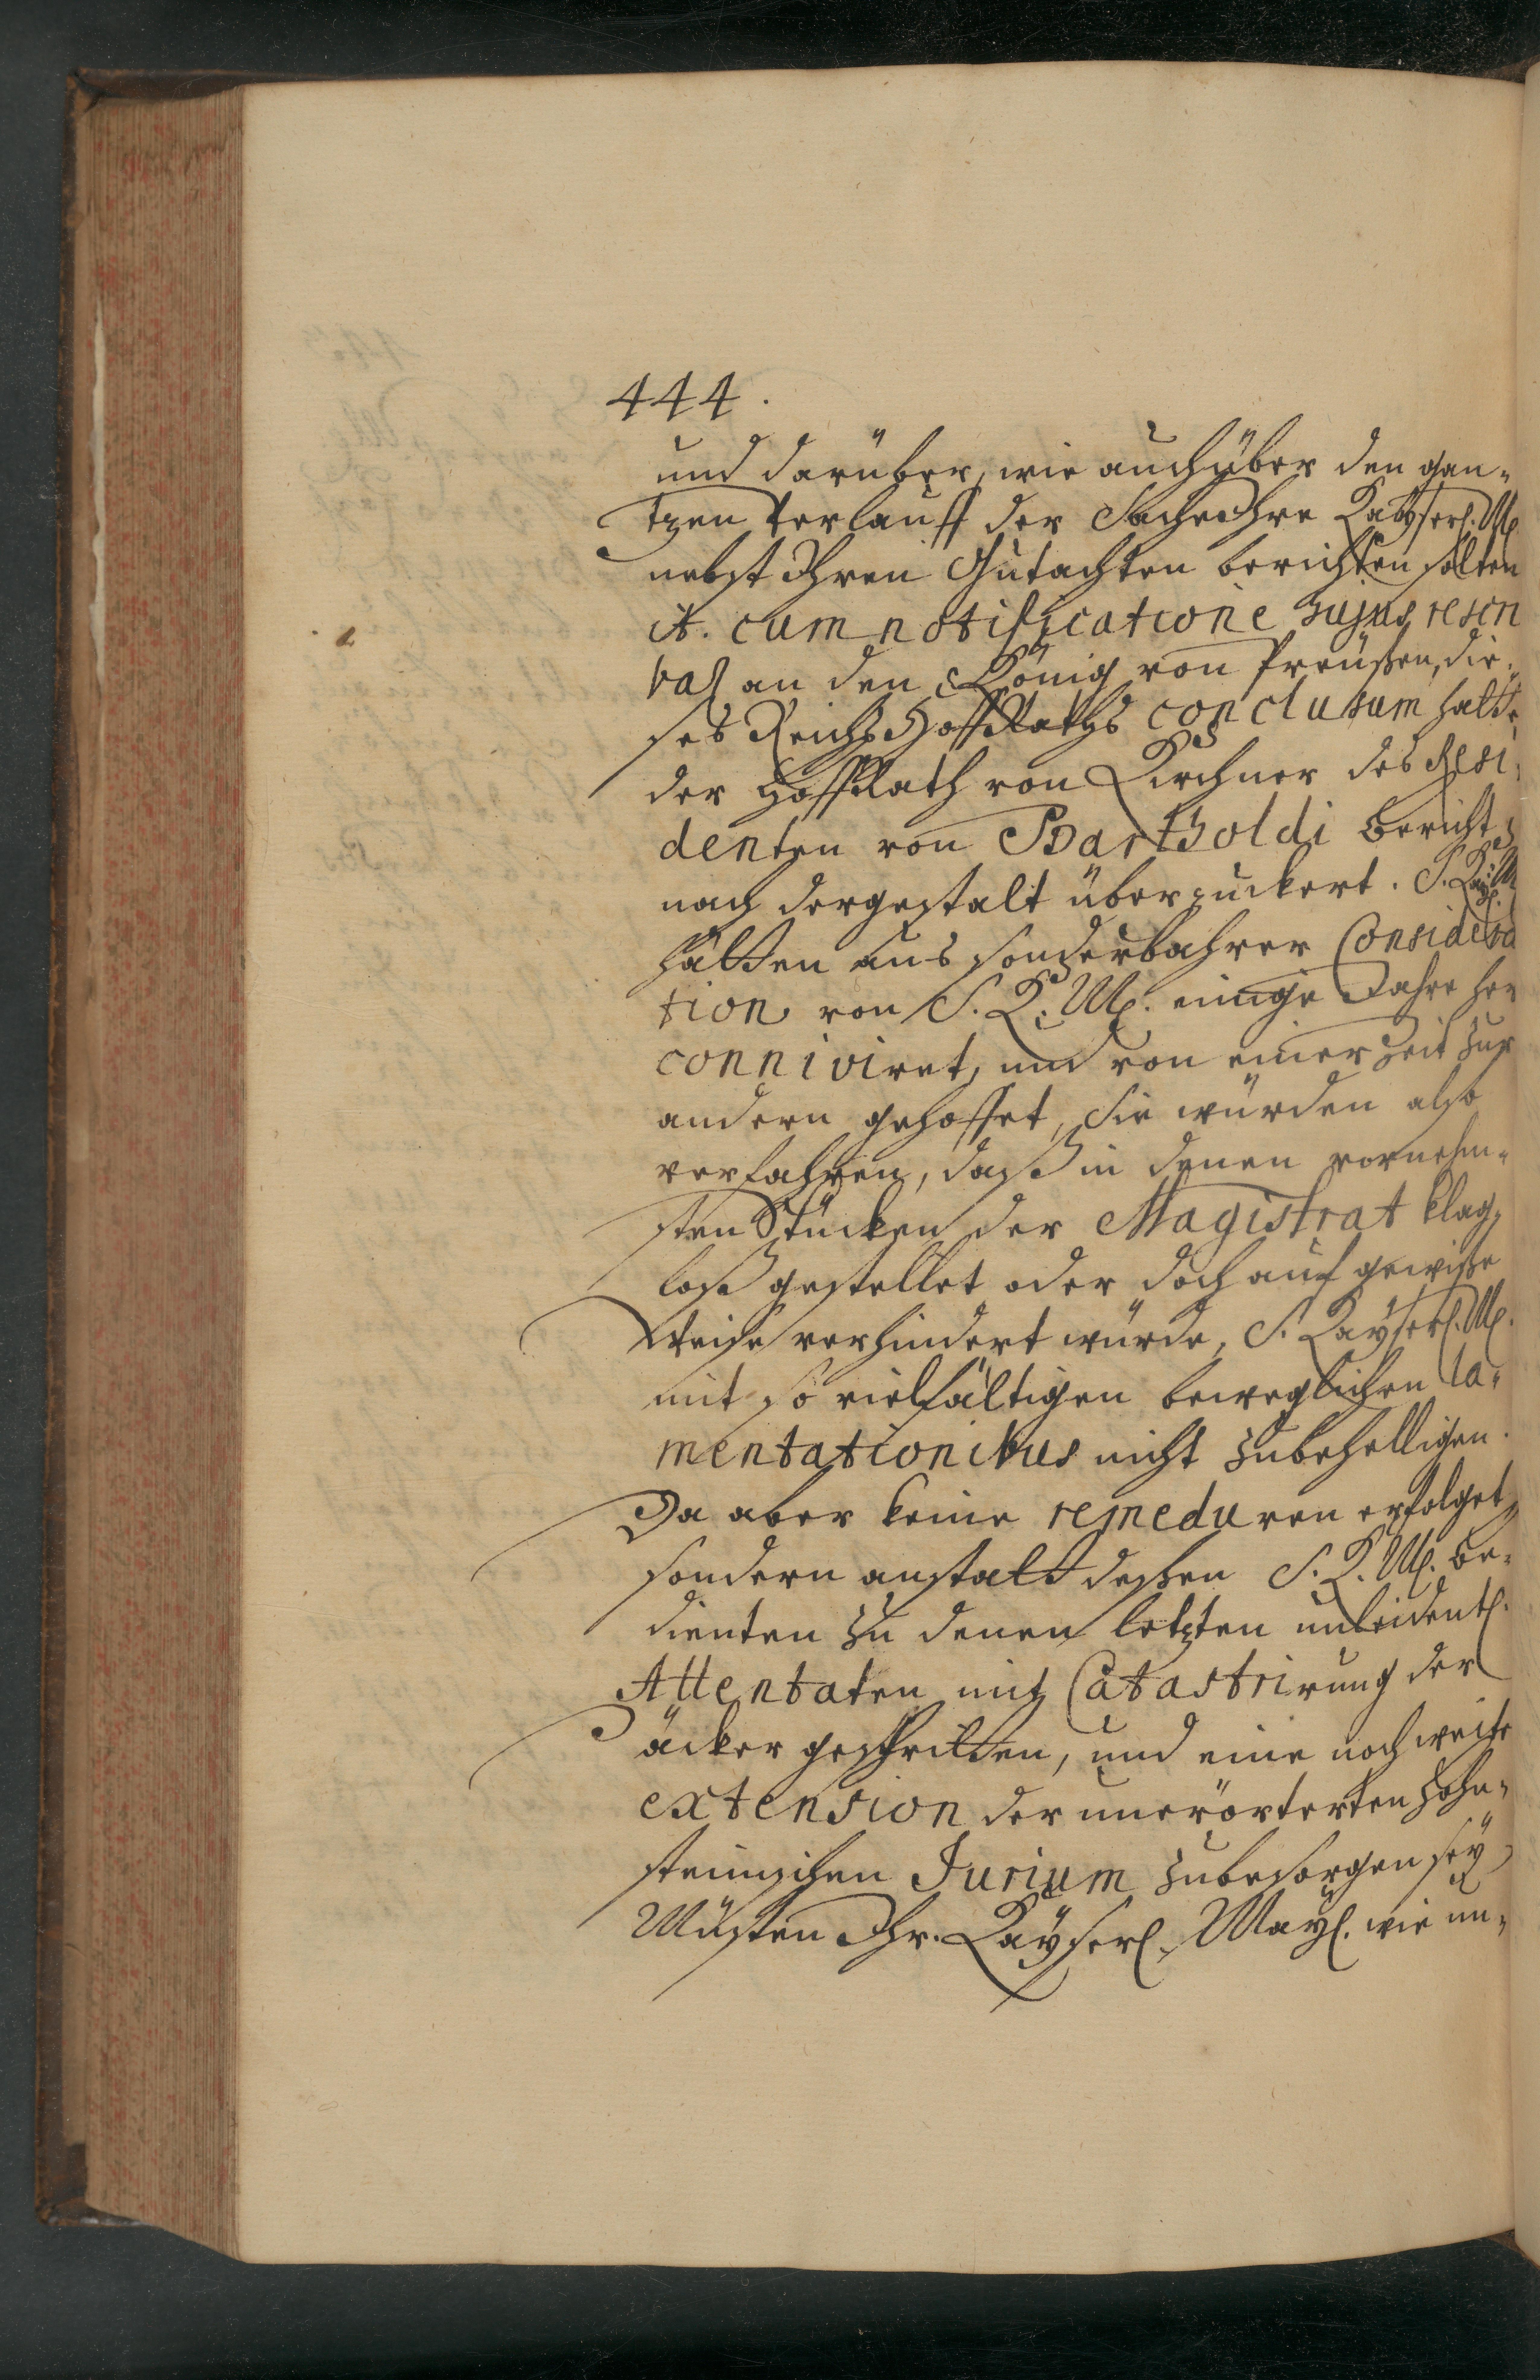 444.
und darüber, wie auch über den gan-
tzen Verlauff der Sache Ihre Kayserl. M.
nebst Ihren Gutachten berichten solten
it. cum notificatione hujus rescri
an den König von Preußen, die-
ses Reichs Hoff Raths conclusum hatte
der Hoff Rath von Kirchner des Resi-
denten von Bartholdi Bericht
nach dergestalt überzuckert. S. Kayl. M.
hätten aus sonderbahrer Considera
tion von S. K. M. einige Jahre her
conniviret, und von einer Zeit zur
andern gehoffet, Sie würden also
verfahren, daß in denen vornehm-
sten Stücken der Magistrat klag-
loß gestellet oder doch auf gewiße
Weise verhindert würde, S. Kayserl. M.
mit so vielfältigen beweglichen la-
mentationibus nicht zubehelligen.
Da aber keine remeduren erfolget,
sondern anstatt deßen S. K. M. be-
dienten zu denen letzten unleidentl.
Attentaten mit Catastrirung der
äcker geschritten, und eine noch weite
extension der unerörterten Hohn-
steinischen Jurium zubesorgen sey
Müsten Ihr. Kayserl. Mayl. wie un-